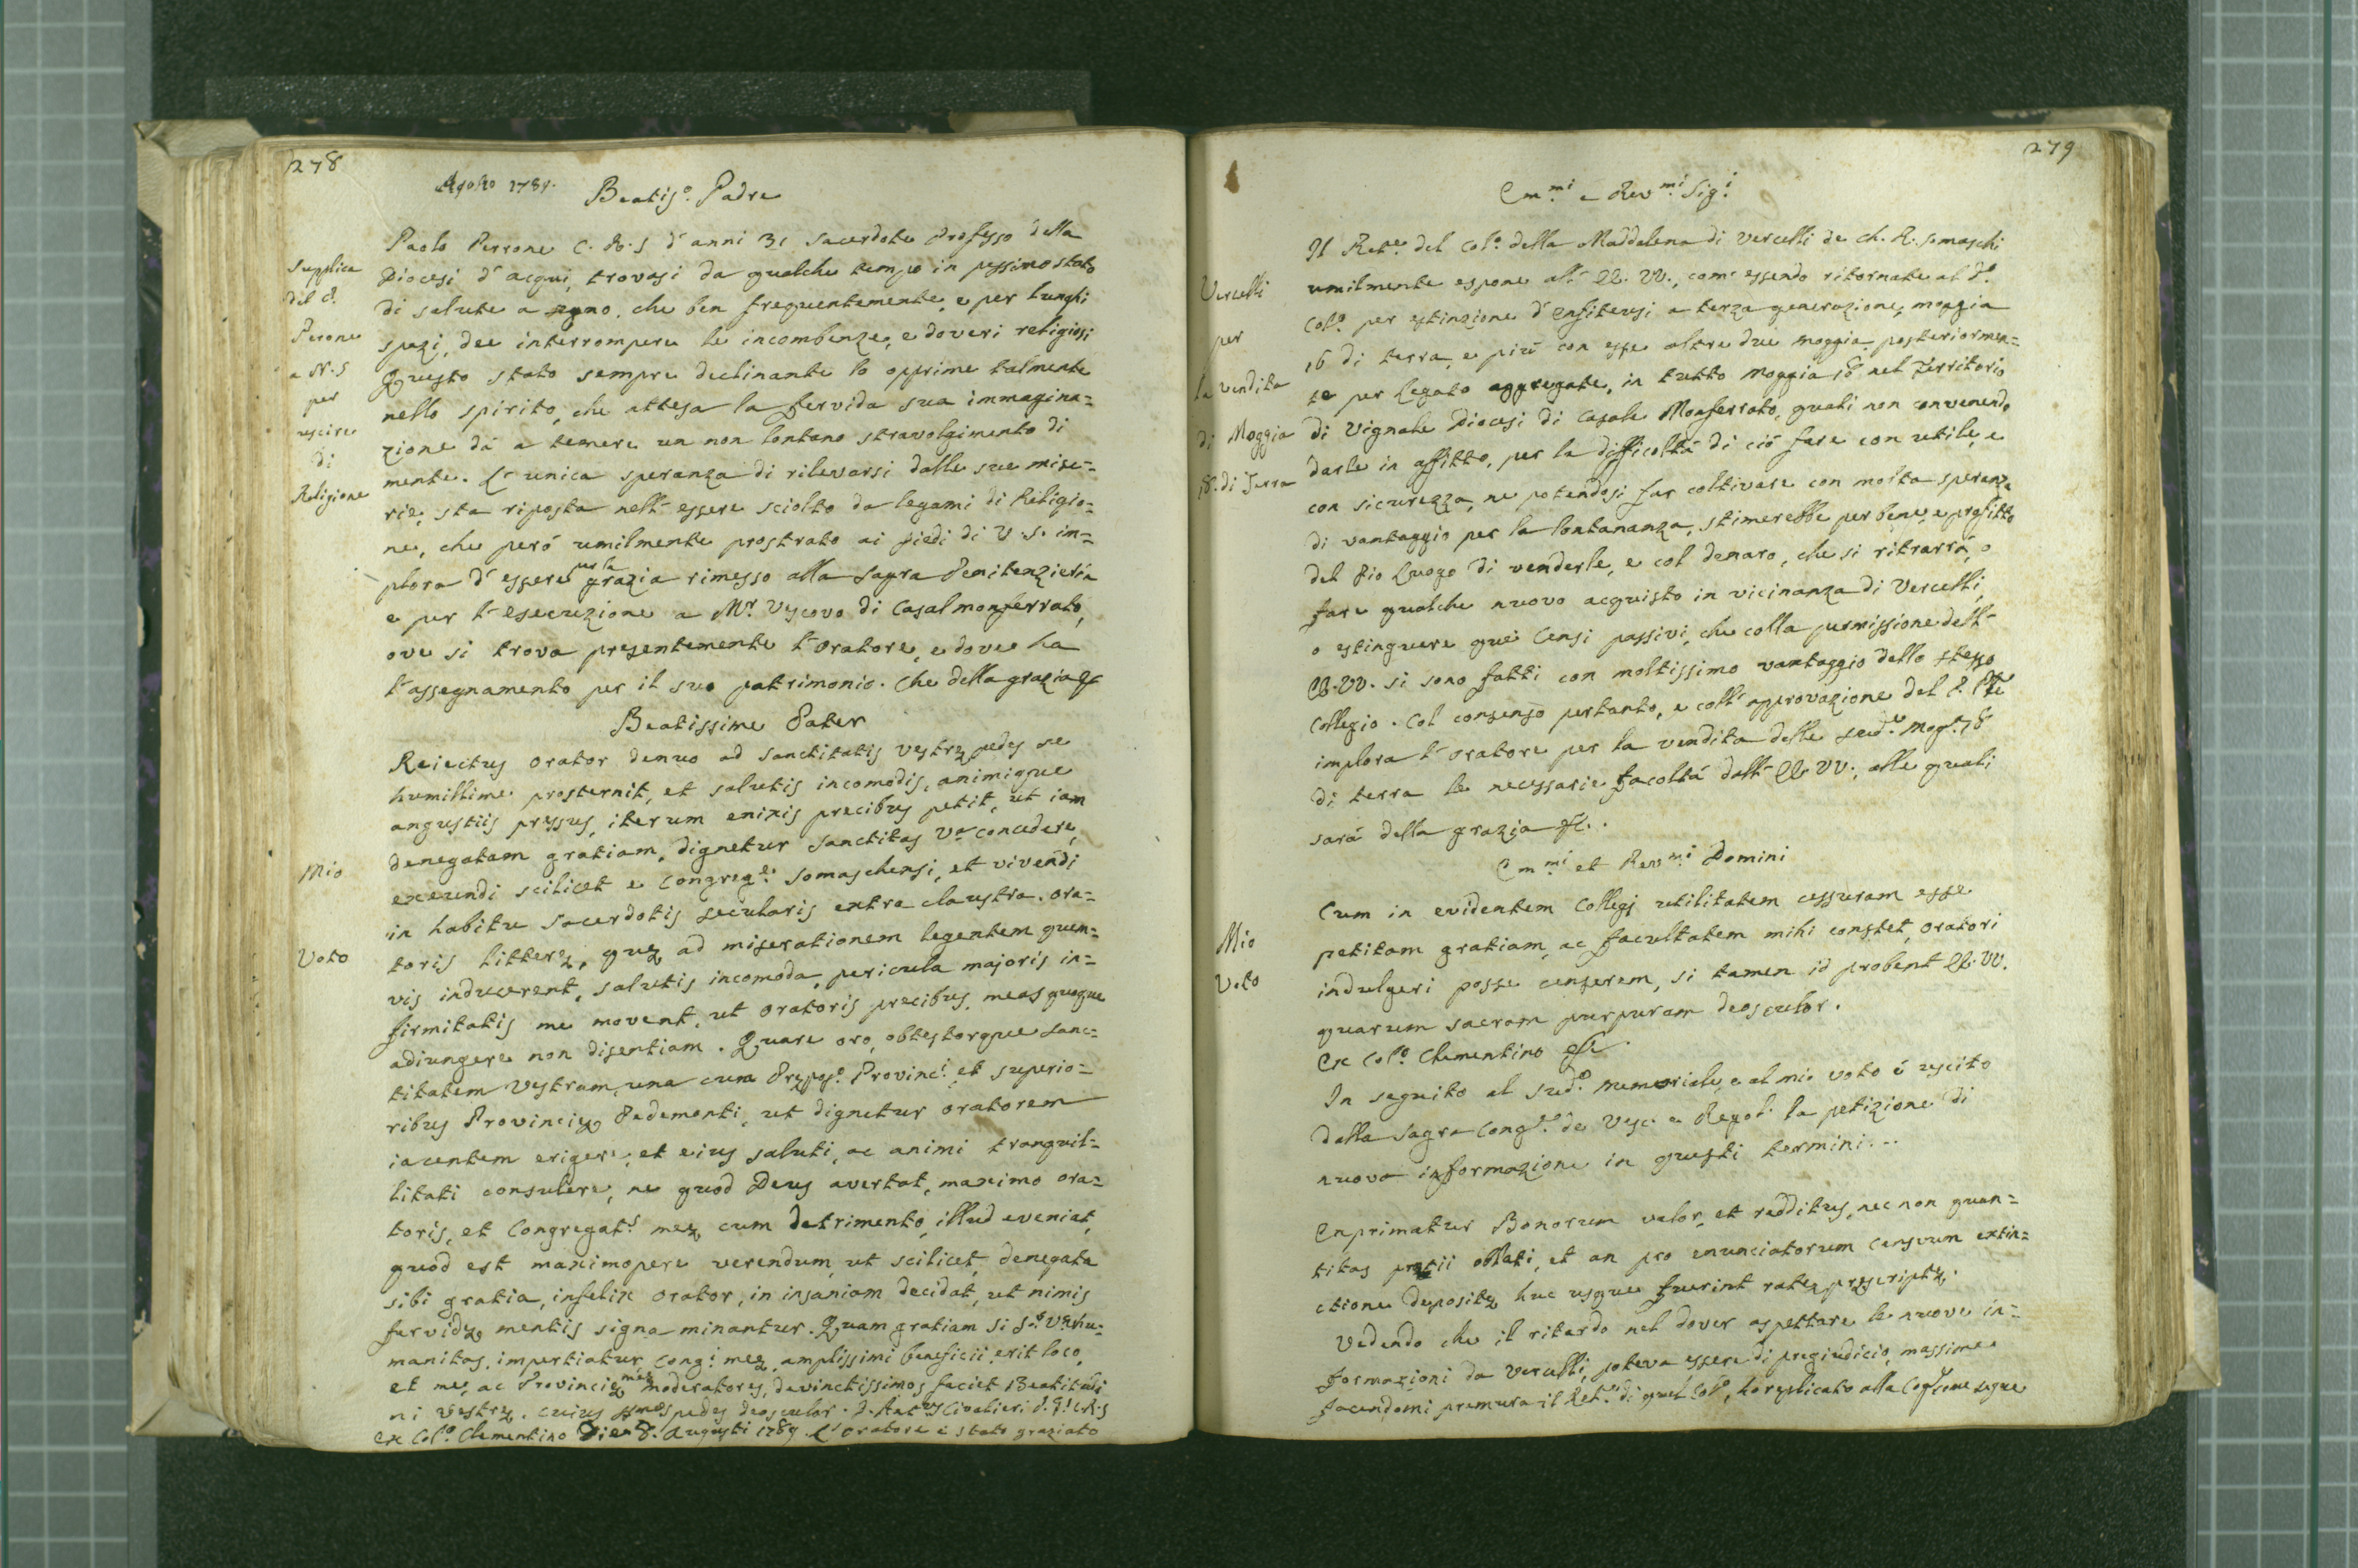 278
Agosto 1789.
Beatis.º Padre
Supplica
del P.
Perone
a N.S
per
uscire
di
Religione
Paolo Perrone C.R.S d'anni 31 sacerdote Professo della
Diocesi d'acqui, trovasi da qualche tempo in pessimo stato
di salute a segno, che ben frequentemente, e per lunghi
spazi, dee interrompere le incombenze, e doveri religiosi
Questo stato sempre declinante lo opprime talmente
nello spirito, che attesa la fervida sua immagina=
zione dà a temere un non lontano stravolgimento di
mente. L'unica speranza di rilevarsi dalle sue mise=
rie, sta riposta nell'essere sciolto da legami di Religio=
ne, che però umilmente prostrato ai piedi di V.S. im=
plora d'essere per la grazia rimesso alla Sagra Penitenzieria
e per l'esecuzione a Mr. Vescovo di Casalmonferrato,
ove si trova presentemente l'Oratore, e dove ha
l'assegnamento per il suo patrimonio. Che della grazia &c
Beatissime Pater
Mio
Voto
Reiectus orator denuo ad Sanctitatis vestrę pedes se
humillime prosternit, et salutis incomodis, animique
angustiis pressus, iterum enixis precibus petit, ut iam
denegatam gratiam, dignetur Sanctitas Vª concedere,
exeundi scilicet e Congreg.e Somaschensi, et vivendi
in habitu sacerdotis secularis extra claustra. Ora=
toris litterę, quę ad miserationem legentem quem=
vis inducerent, salutis incomoda, pericula majoris in=
firmitatis me movent, ut oratoris precibus, meas quoque
adiungere non disentiam. Quare oro, obtestorque Sanc=
titatem Vestram, una cum Prępos.º Provinc.i et superio=
ribus Provincię Pedemonti, ut dignetur oratorem
iacentem erigere, et eius saluti, ac animi tranquil=
litati consulere, ne quod Deus avertat, maximo ora=
toris, et Congregat.s meę cum detrimento, illud eveniat,
quod est maximopere verendum, ut scilicet, denegata
sibi gratia, infelix orator, in insaniam decidat, ut nimis
fervidę mentis signa minantur. Quam gratiam si S.ª Vª hu=
manitas, impertiatur, Cong.i meę amplissimi beneficii erit loco,
et me, ac Provincię meę moderatores, devinctissimos faciet Beatitudi
ni Vestrę. cuius pedes deosculor. D. Ant.us Civalieri P. G.l C.R.S
Ex Col.º Clementino Die 8. Augusti 1789. L'oratore è stato graziato
279
Em.mi e Rev.mi Sig.i
Vercelli
per
la vendita
di Moggia
18. di Terra
Il Ret.e del Col.º della Maddalena di Vercelli de Ch. R. Somaschi
umilmente espone all' EE. VV., come essendo ritornate al d.º
Col.º per estinzione d'Enfiteusi a terza generazione, moggia
16 di terra, e più con esse altre due moggia, posteriormen=
te per legato aggregate, in tutto Moggia 18 nel Territorio
di Vignale Diocesi di Casale Monferrato, quali non convenendo
darle in affitto, per la difficoltà di ciò fare con utile, e
con sicurezza, ne potendosi far coltivare con molta speranza
di vantaggio per la lontananza, stimerebbe per bene, e profitto
del Pio Luogo di venderle, e col denaro, che si ritrarrà, o
fare qualche nuovo acquisto in vicinanza di Vercelli,
o estinguere quei Censi passivi, che colla permissione dell'
EE. VV. si sono fatti con moltissimo vantaggio dello stesso
Collegio. Col consenso pertanto, e coll'approvazione del P. Ple
implora l'oratore per la vendita delle sud.e Mog.a 18
di terra le necessarie facoltà dall' EE. VV., alle quali
sarà della grazia &c.
Em.mi et Rev.mi Domini
Mio
Voto
Cum in evidentem Collegj utilitatem cessuram esse
petitam gratiam, ac facultatem mihi constet, oratori
indulgeri posse censerem, si tamen id probent EE. VV.
quarum sacram purpuram deosculor.
Ex Col.º Clementino &c.
In seguito al sud.º memoriale, e al mio voto è uscito
dalla Sagra Cong.e de Vesc. e Regol. la petizione di
nuova informazione in questi termini...
Exprimatur Bonorum valor, et redditus, nec non quan=
titas pretii oblati, et an pro enunciatorum censuum extin=
ctione depositę huc usque fuerint ratę prescriptę.
Vedendo che il ritardo nel dover aspettare le nuove in=
formazioni da Vercelli, poteva essere di pregiudicio, massime
facendomi premura il Ret.e di quel Col.º, ho replicato alla Cog.ne come segue